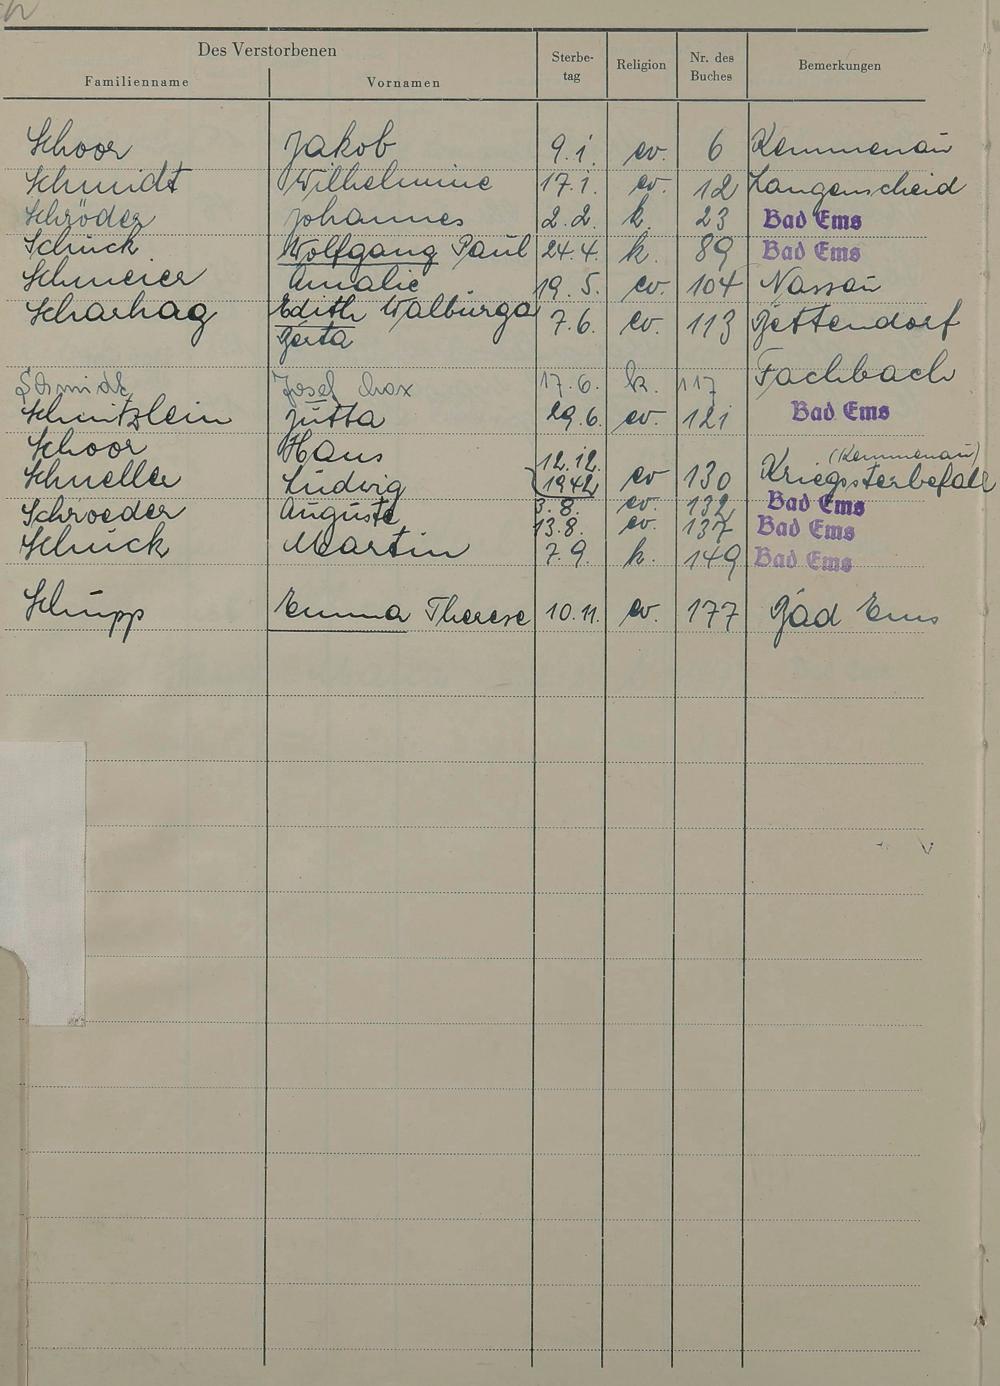 Des Verstorbenen Sterbe-tag Religion Nr. des Buches Bemerkungen
Familienname Vornamen
Schoor Jakob 9.1. ev. 6 Kemmenau
Schmidt Wilhelmine 17.1. ev. 12 Langenscheid
Schröder Johannes 2.2. k. 23 Bad Ems
Schuck Wolfgang Paul 24.4. k. 89 Bad Ems
Schmeier Amalie 19.5. ev. 104 Nassau
Scharhag Edith Walburga 7.6. ev. 113 Dettendorf
Gerta
Schmidt Josef Max 17.6. k. 117 Fachbach
Schnitzlein Jutta 29.6. ev. 121 Bad Ems
Schoor Hans 12.12. 1942 ev 130 (Kemmenau) Kriegssterbefall
Schneller Ludwig 3.8. ev. 132 Bad Ems
Schroeder Auguste 13.8. ev. 137 Bad Ems
Schuck Martin 7.9. k. 149 Bad Ems
Schupp Emma Therese 10.11. ev. 177 Bad Ems